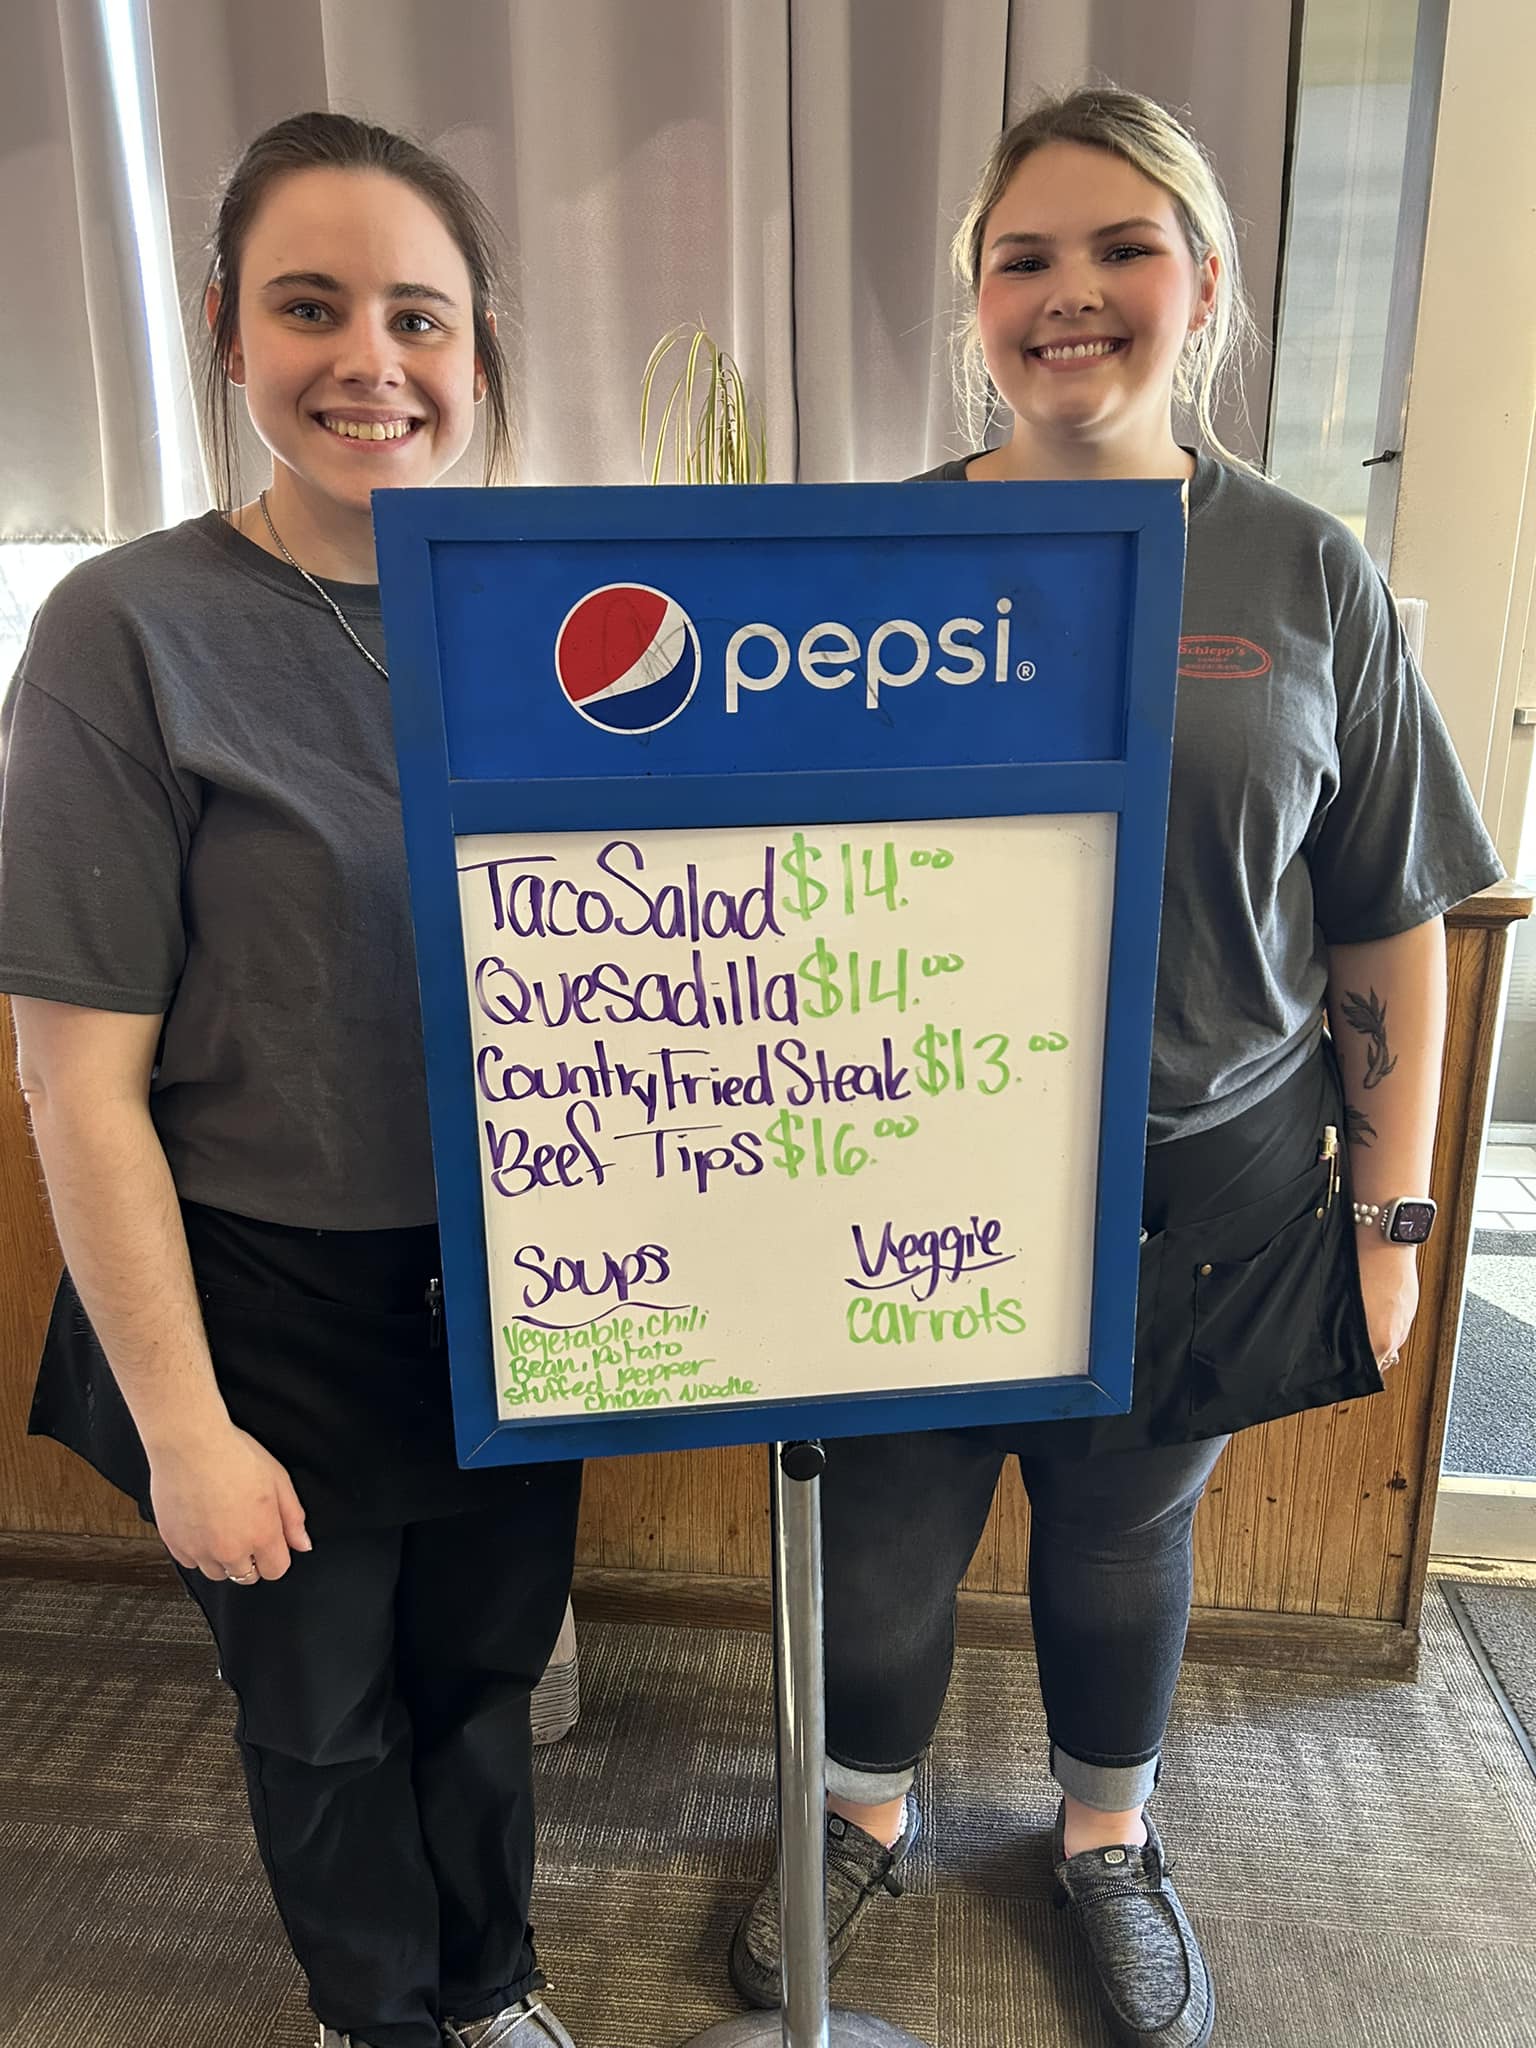 pepsi®
Schlepp's
Taco Salad $14.00
Quesadilla $14.00
Country Fried Steak $13.00
Beef Tips $16.00
Soups
Vegetable, Chili
Bean, Potato
Stuffed pepper
Chicken Noodle
Veggie
Carrots